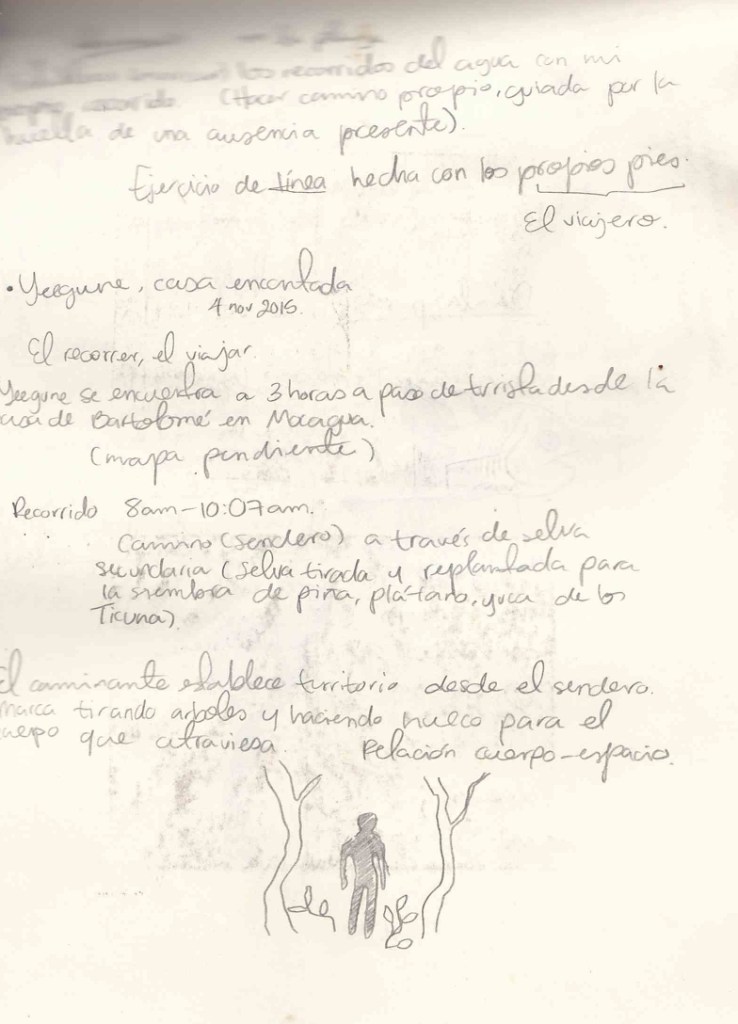 los recorridos del agua con mi
propio recorrido. (Hacer camino propio, guiada por la
huella de una ausencia presente).
Ejercicio de línea hecha con los propios pies.
El viajero.
• Yeegune, casa encantada
4 nov 2015.
El recorrer, el viajar.
Yeegune se encuentra a 3 horas a paso de turista desde la
casa de Bartolomé en Mocagua.
(mapa pendiente)
Recorrido 8am-10:07am.
Camino (sendero) a través de selva
secundaria (selva tirada y replantada para
la siembra de piña, plátano, yuca de los
Ticuna).
El caminante establece territorio desde el sendero.
Marca tirando arboles y haciendo hueco para el
cuerpo que atraviesa. Relación cuerpo-espacio.